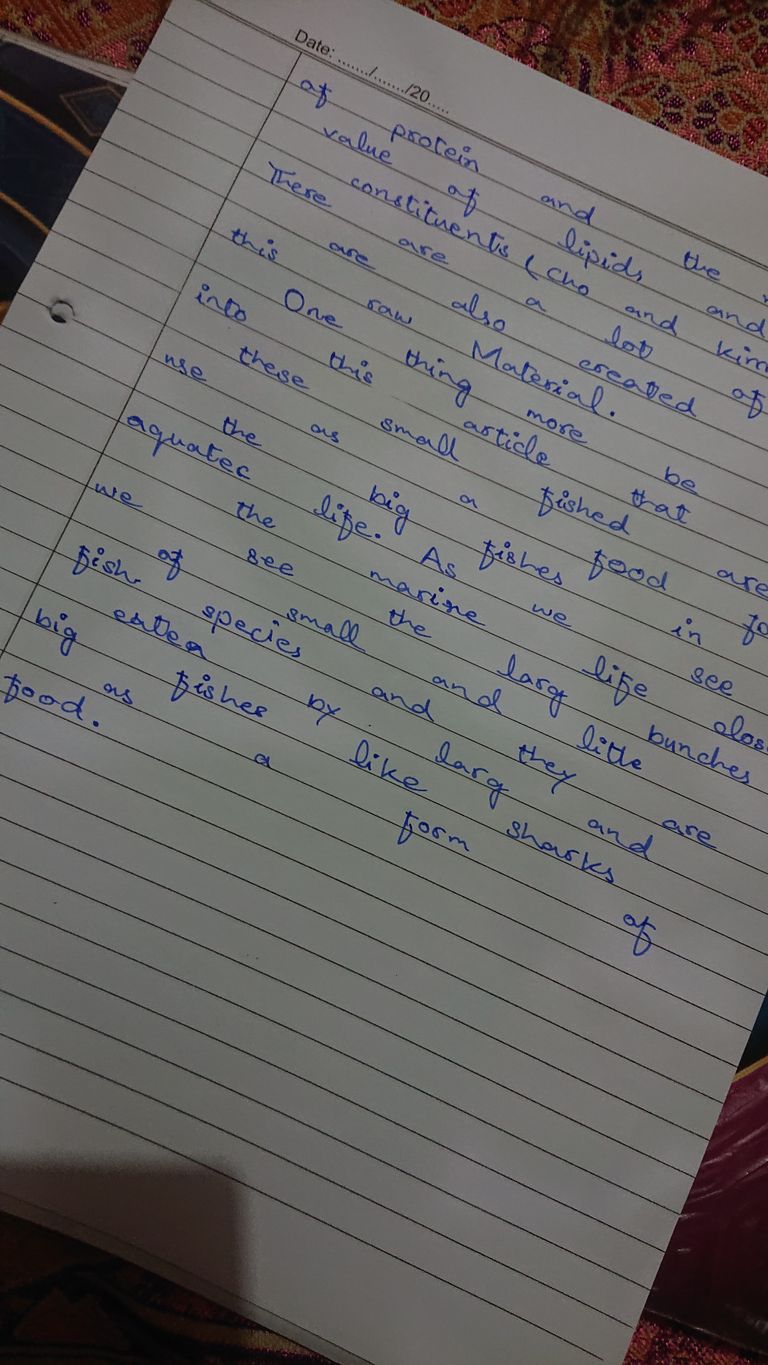 of protein and the
value of lipids and
constituents (cho and
There are a lot of
are also created
this raw Material.
One thing more be
into this article that
these small fished are
use as a food
the big fishes in
aquatec life. As we see
the marine life
we see the larg bunches
of small and litle
fish species and they are
eaten by larg and
big fishes like sharks
as a form of
food.
Date: ......./......./20.....